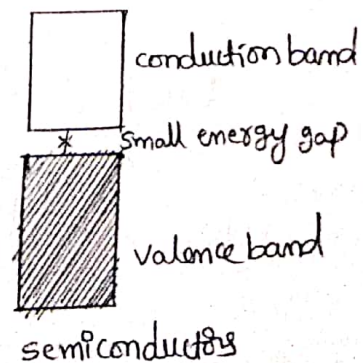 conduction band
small energy gap
valence band
semiconductors